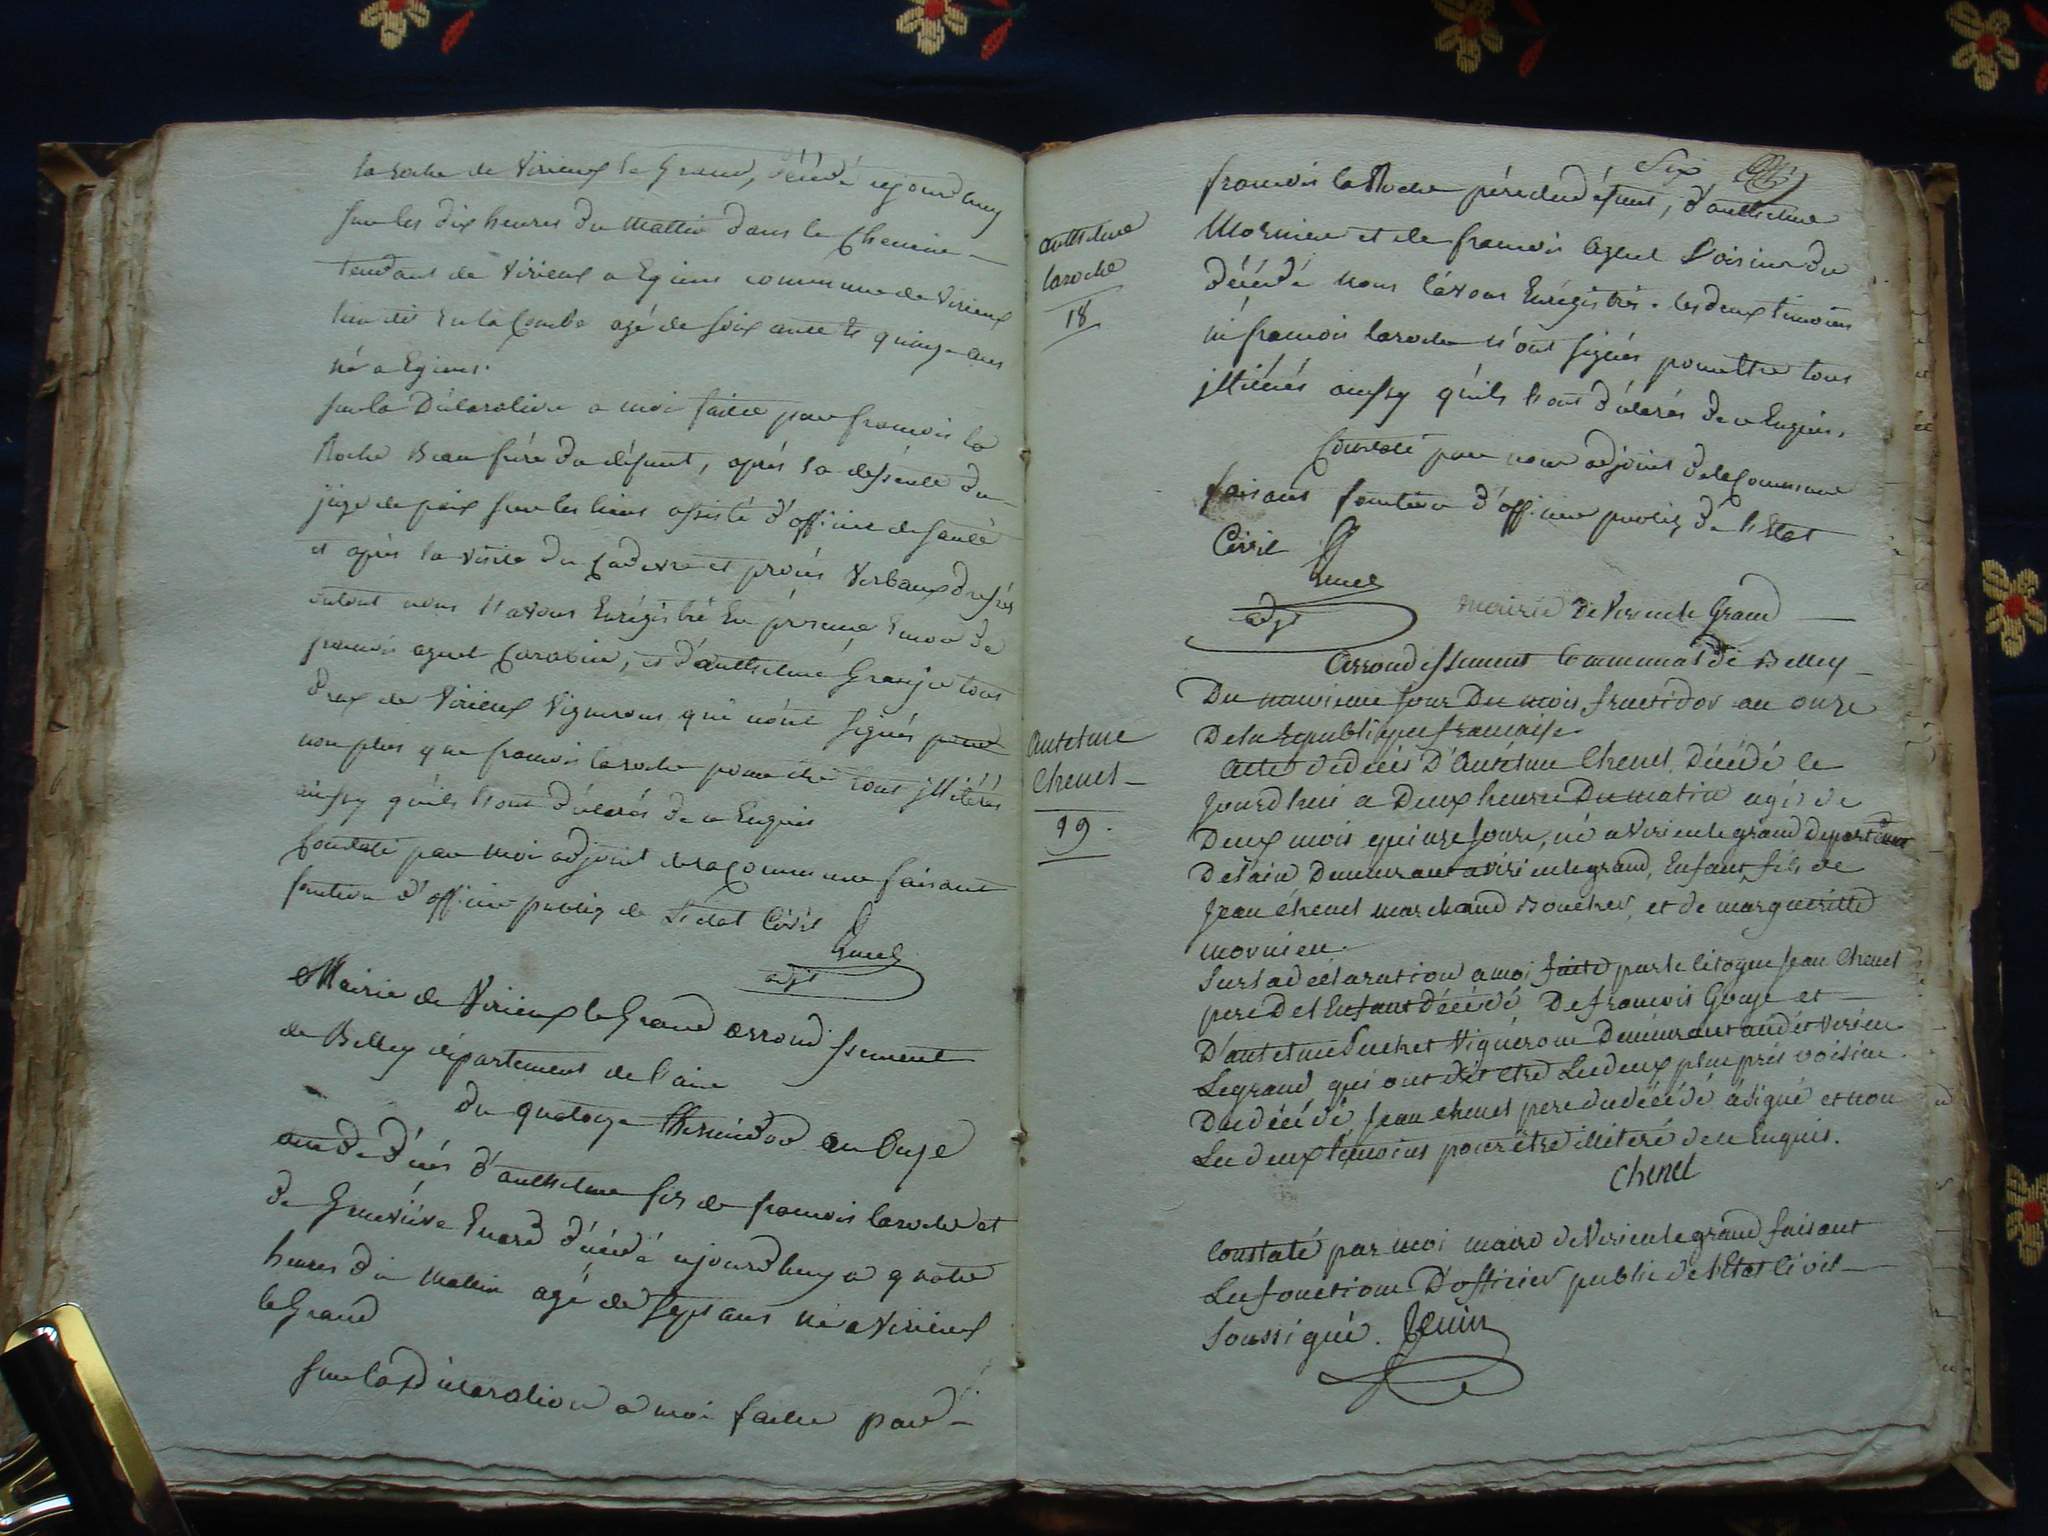 la roche de Virieux le Grand, décédé ajourdhuy
sur les dix heures du mattin dans le chemin
tendant de Virieux a Egieux commune de Virieux
lieu dit en la Combe agé de soixante et quinze ans
né a Egieux.
sur la déclaration a moi faitte par francois la
Roche Beau frére du défunt, aprés la dessente du
juge de paix sur les lieux assisté d'officier de santé
et aprés la visite du Cadavre et procés Verbaux dressés
nous l'avons Enrégistré En présence de
francois aguet Carabin, et d'anthelme Granje tous
deux de Virieux Vignerons qui n'ont signés
non plus que francois laroche pour etre tous jlliterés
ainssy qu'ils l'ont déclarés de ce Enquis
Constaté par moi adjoint de la Commune faisant
fonction d'officier public de l'état Civil
adjt
Mairie de Virieux le Grand arrondissement
de Belley département de l'ain
du quatorze thermidor an Onze
acte de décés d'anthelme fils de francois laroche et
de Geneviéve Evard décédé ajourdhuy a quatre
heures du mattin agé de sept ans né a Virieux
le Grand
sur la déclaration a moi faitte par
Six
anthelme
laroche
18
francois la Roche pére du défunt, d'anthelme
Mornieu et de francois aguet Voisins du
décédé nous l'avons Enrégistrés. les deux témoins
ni francois laroche n'ont signés pour etre tous
jlliterés ainssy qu'ils l'ont déclarés de ce Enquis.
Constaté par nous adjoint de la Commune
faisant fonction d'officier public de l'Etat
Civil
adjt
Mairie de Virieu le Grand
Arrondissement Communal de Belley
Du neuvieme jour Du mois fructidor an onze
De la Republique francaise
Antelme
Chenet
19.
Acte de décés D'Antelme Chenet, Décédé le
jourdhui a Deux heure Du matin agés de
Deux mois quinze jours, né a Virieu le grand Departement
De l'ain Demeurant a Virieu le grand, Enfant, fils de
Jean Chenet marchand Boucher, et de margueritte
mornieu.
Sur la déclaration a moi faite par le Citoyen Jean Chenet
pere De l'Enfant Décédé, De francois Gouje et
D'antelme Vigneron Demeurant audit Virieu
Legrand, qui ont dit etre Les deux plus prés voisin
Du décédé, Jean Chenet pere du décédé á signé et non
Les deux témoins pour être illiteré de ce Enquis.
Chenet
Constaté par moi maire de Virieu le grand faisant
Les fonctions D'officier public de l'Etat Civil
Soussigné.